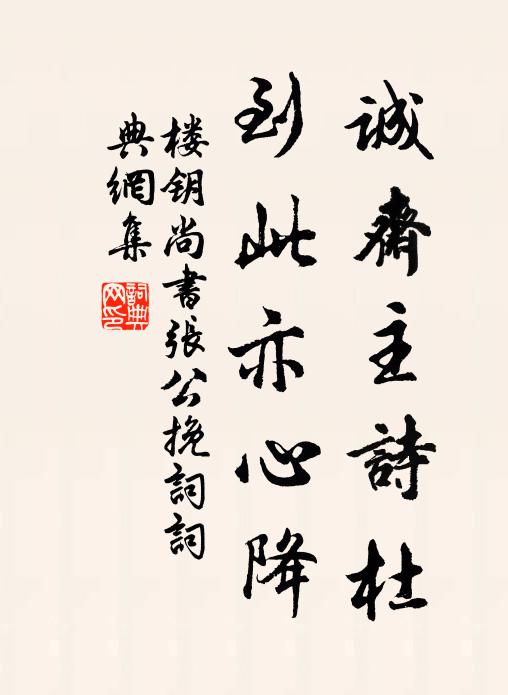 诚斋主詩杜
到此亦心降
楼钥尚書張公挽詞詞
典網集
詞典网印